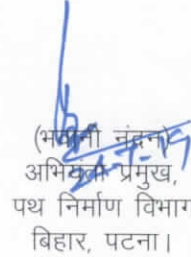 (भवानी नंदन)
24-7-19
अभियन्ता प्रमुख,
पथ निर्माण विभाग
बिहार, पटना।